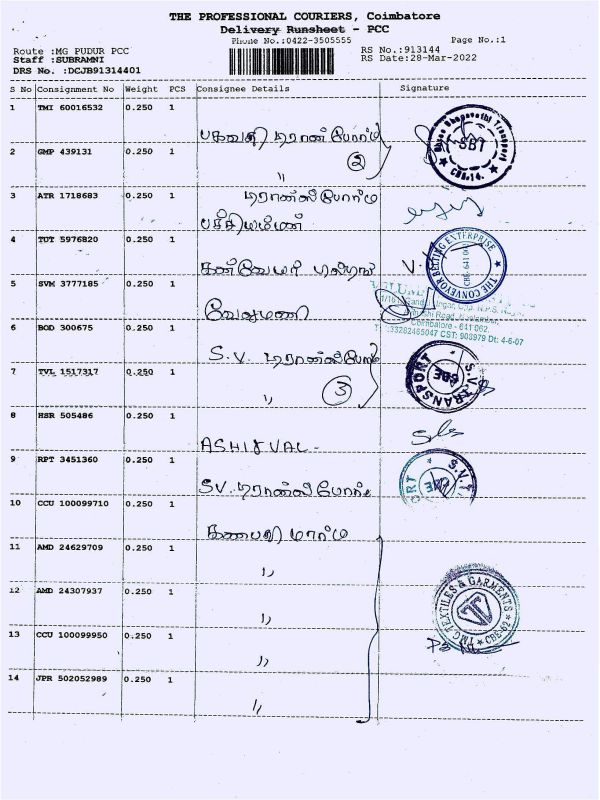 THE PROFESSIONAL COURIERS, Coimbatore
Delivery Runsheet - PCC
Phone No.:0422-3505555 Page No.:1
Route :MG PUDUR PCC RS No.:913144
Staff :SUBRAMNI RS Date:28-Mar-2022
DRS No. :DCJB91314401
S No Consignment No Weight PCS Consignee Details Signature
1 TMI 60016532 0.250 1
பகவதி டிரான்ஸ்போர்ட்
2 GMP 439131 0.250 1
" 2
Shree Bhagavathi Transport
SBT
CBE-14.
3 ATR 1718683 0.250 1 டிரான்ஸ்போர்ட்
4 TUT 5976820 0.250 1
THE CONVEYOR BELTING ENTERPRISE
5 SVM 3777185 0.250 1
வேலுமணி
Coimbatore - 641 062.
CST: 903979 Dt: 4-6-07
6 BOD 300675 0.250 1
S.V. டிரான்ஸ்போர்ட்
7 TVL 1517317 0.250 1
" 3
S.V. TRANSPORT
CBE
8 HSR 505486 0.250 1
9 RPT 3451360 0.250 1
SV. டிரான்ஸ்போர்ட்
10 CCU 100099710 0.250 1
கணபதி மார்ட்
11 AMD 24629709 0.250 1
"
12 AMD 24307937 0.250 1
"
TMG TEXTILES & GARMENTS
CBE-62
13 CCU 100099950 0.250 1
"
14 JPR 502052989 0.250 1
"